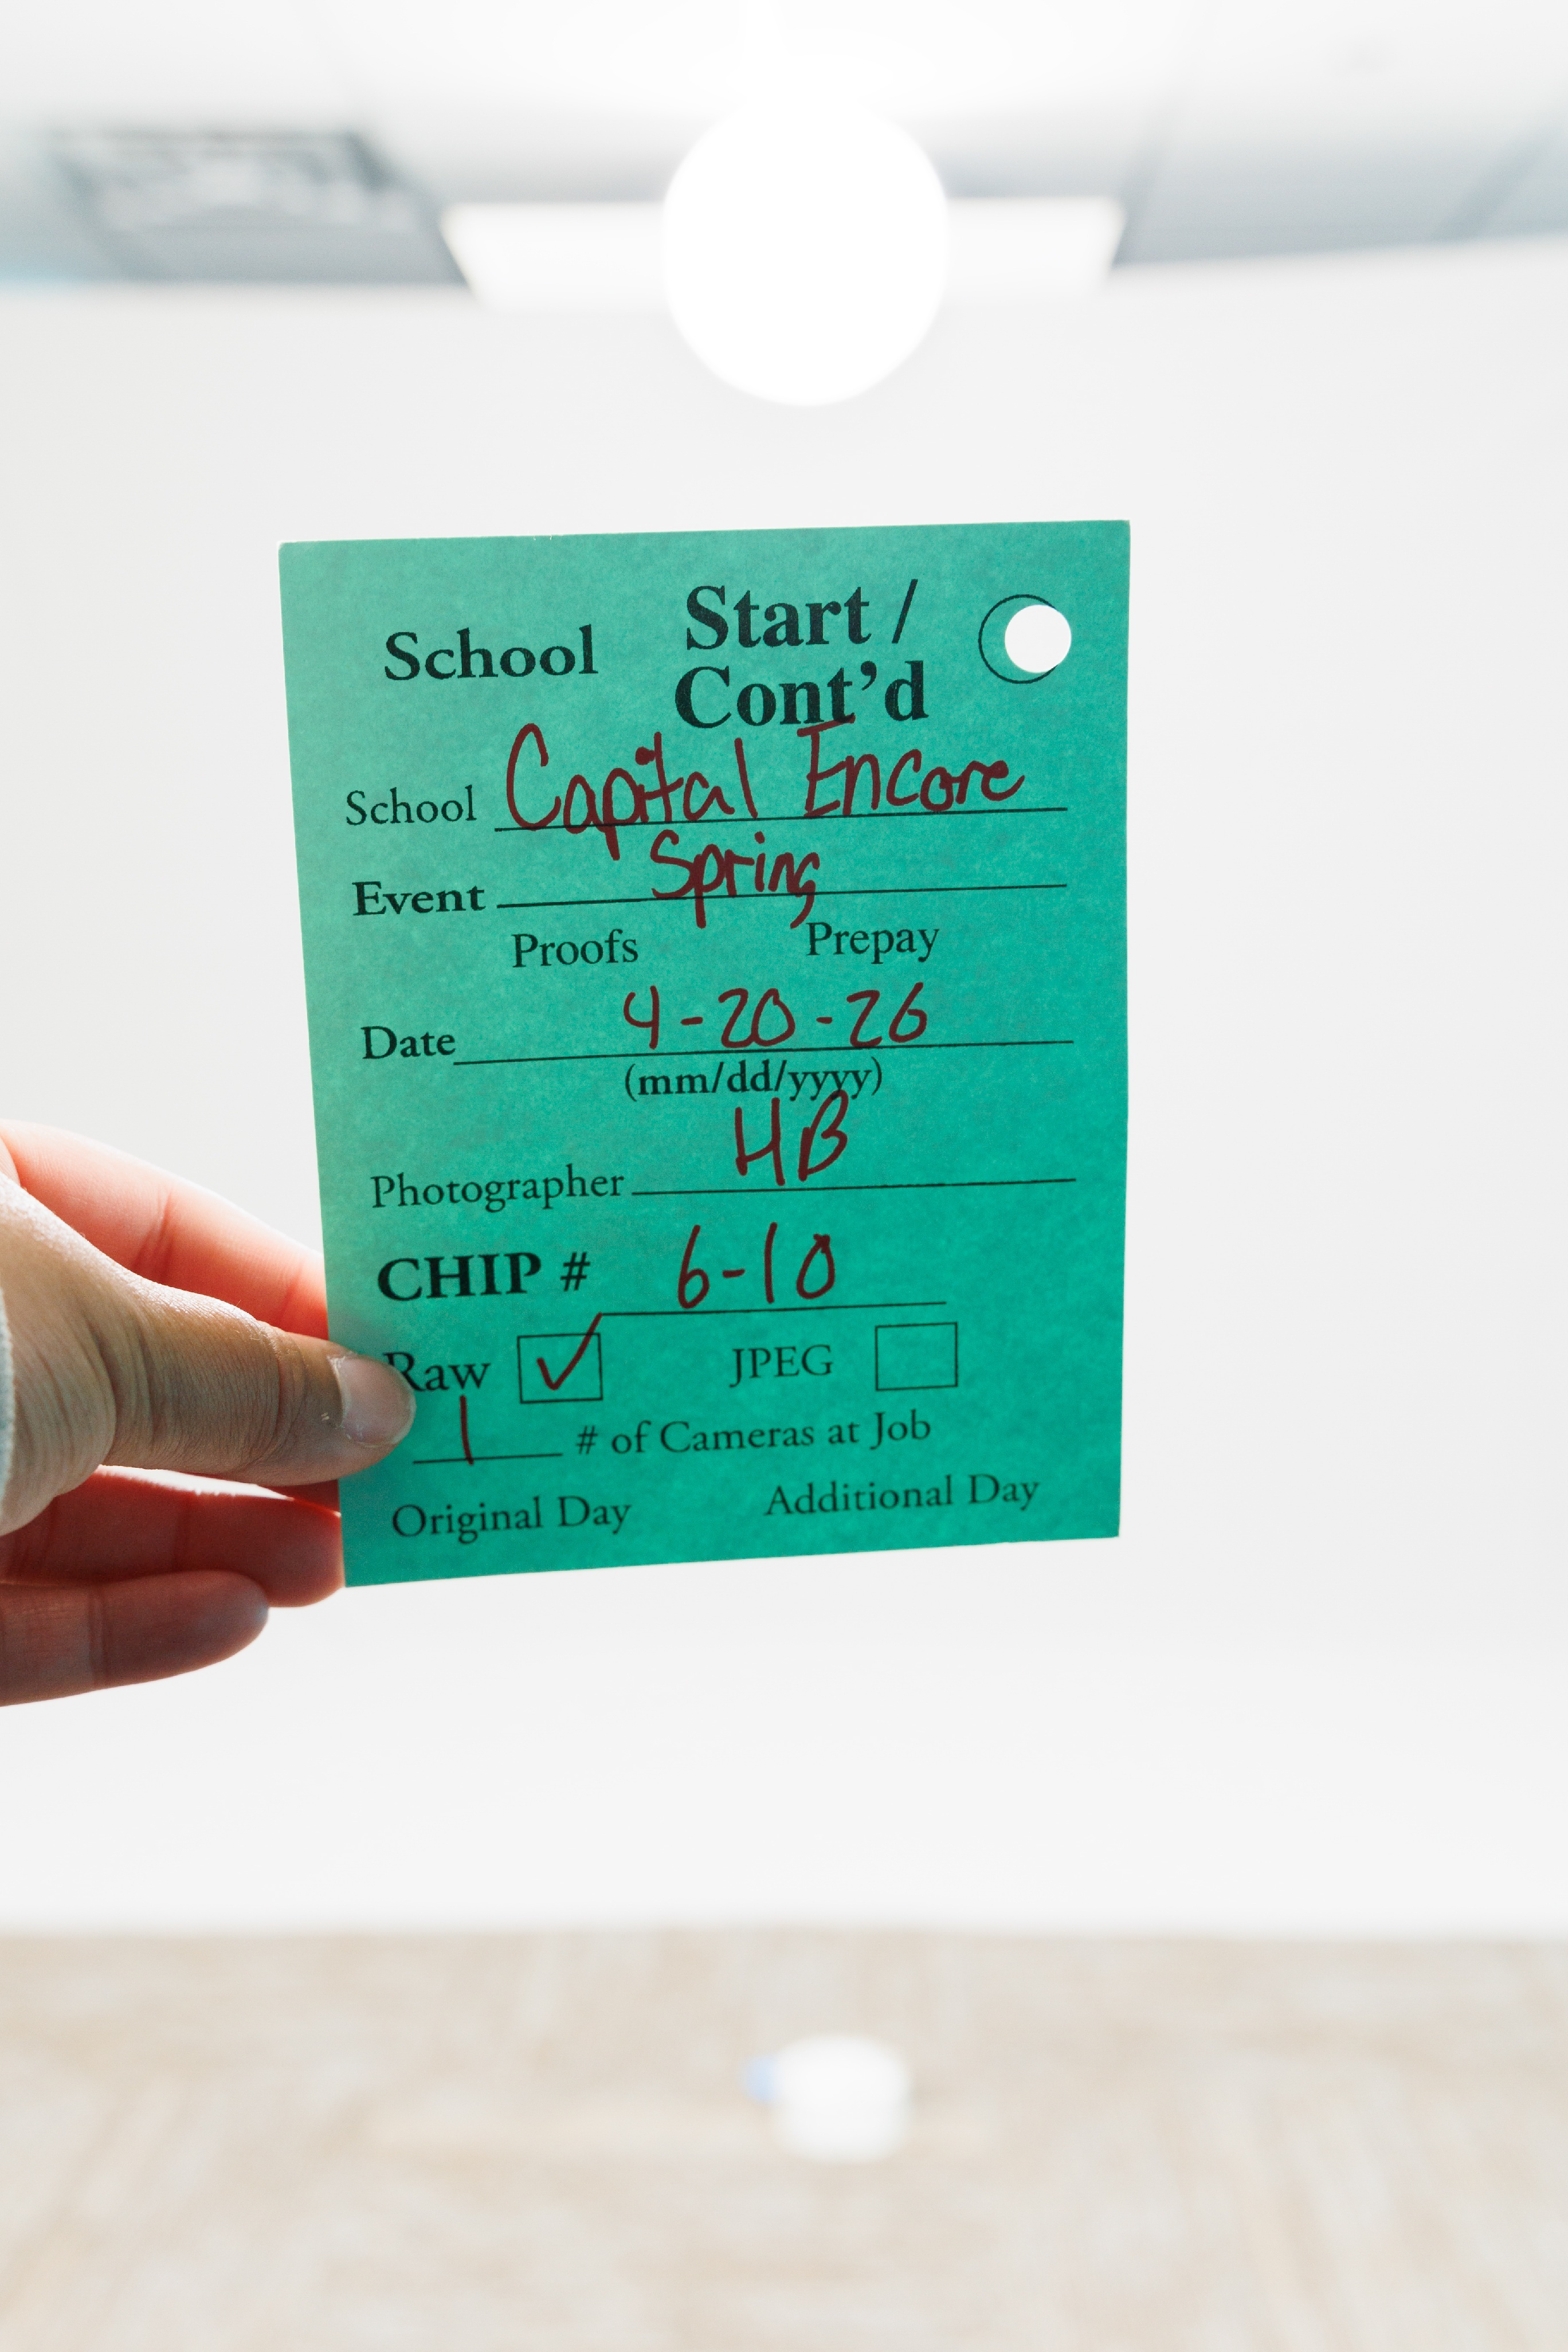 School Start /
Cont'd
School Capital Encore
Event Spring
Proofs Prepay
Date 4-20-26
(mm/dd/yyyy)
Photographer HB
CHIP # 6-10
Raw ✓ JPEG
1 # of Cameras at Job
Original Day Additional Day